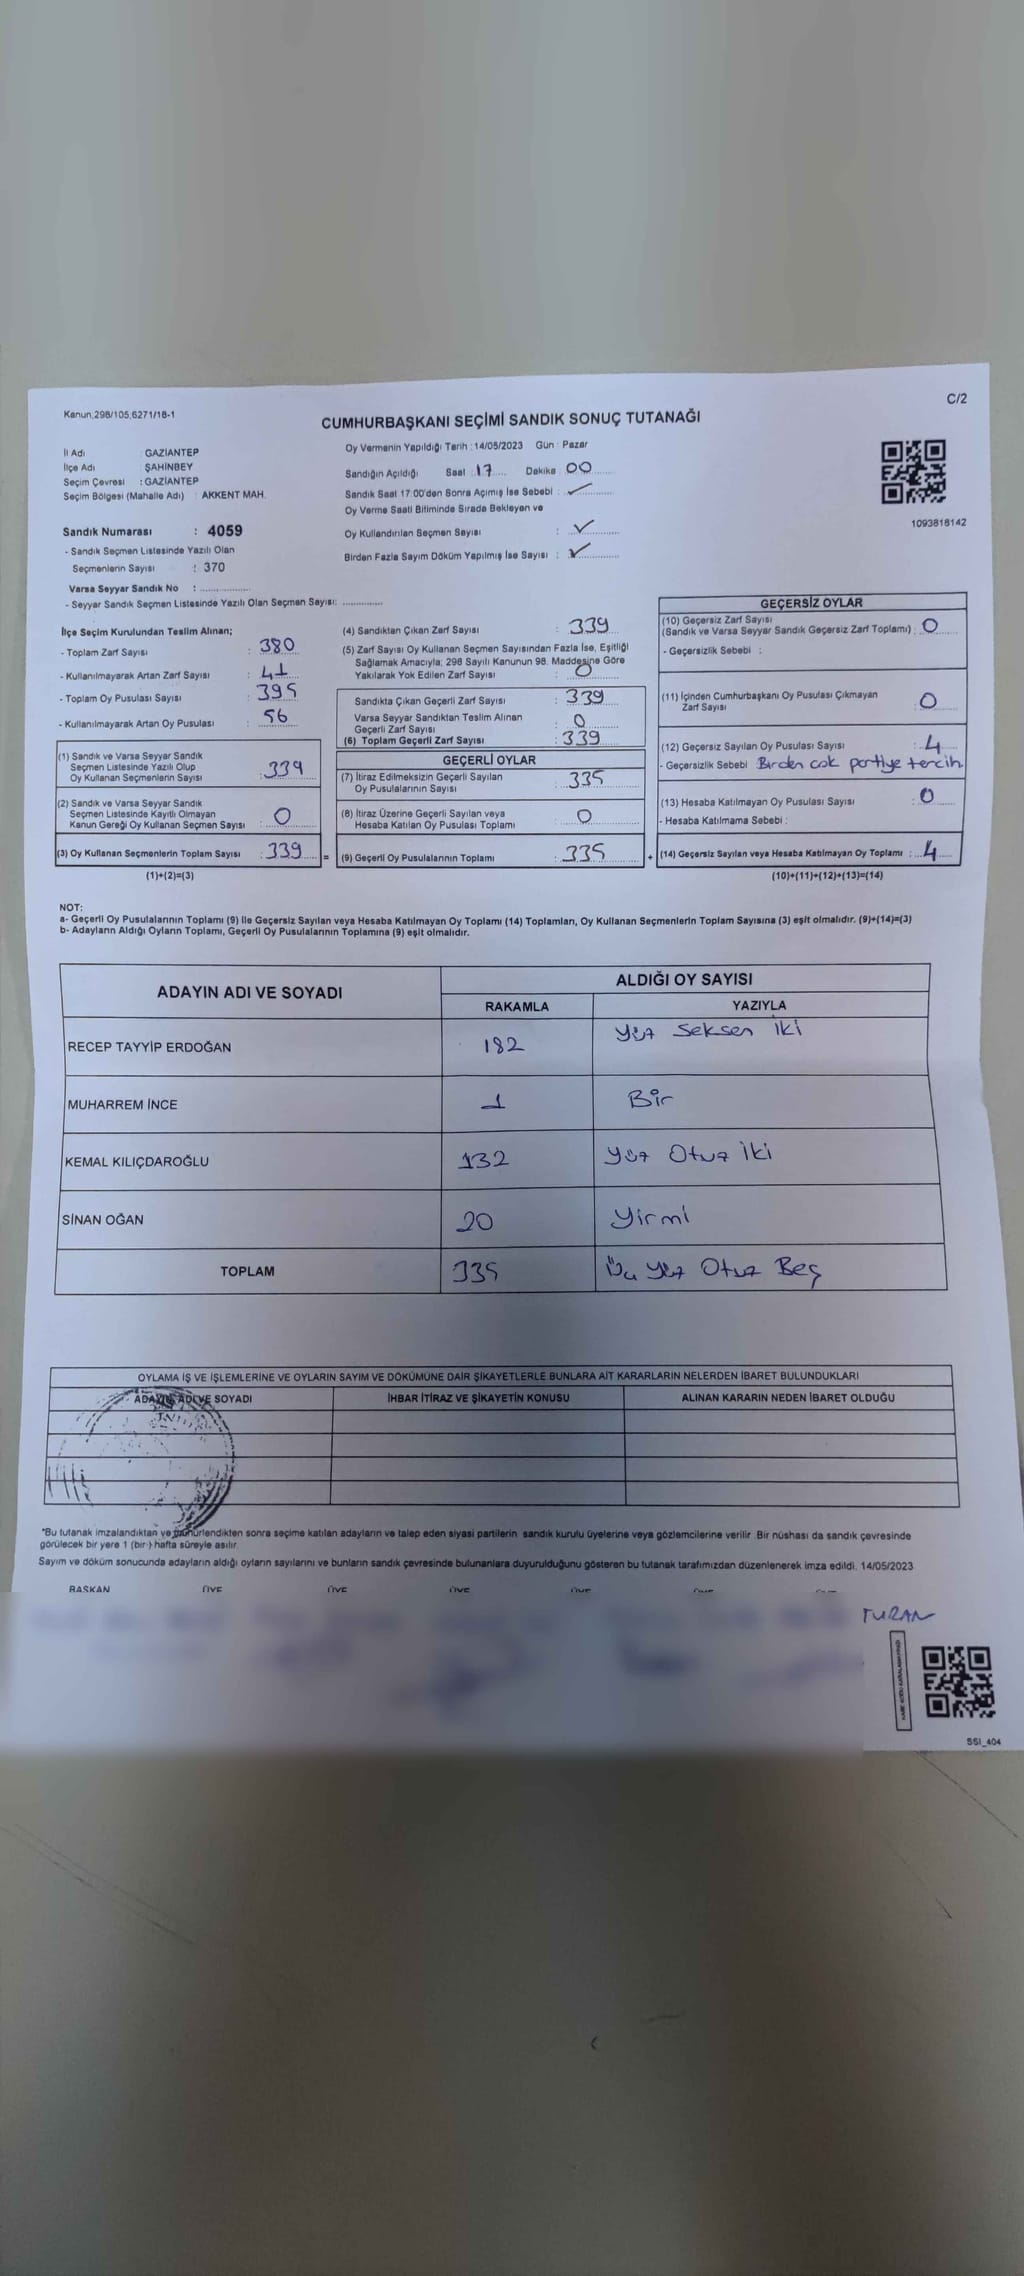 Kanun:298/105,6271/18-1
C/2
CUMHURBAŞKANI SEÇİMİ SANDIK SONUÇ TUTANAĞI
İl Adı : GAZİANTEP
İlçe Adı : ŞAHİNBEY
Seçim Çevresi : GAZİANTEP
Seçim Bölgesi (Mahalle Adı) : AKKENT MAH.
Sandık Numarası : 4059
- Sandık Seçmen Listesinde Yazılı Olan
Seçmenlerin Sayısı : 370
Varsa Seyyar Sandık No : ................
- Seyyar Sandık Seçmen Listesinde Yazılı Olan Seçmen Sayısı: .............
Oy Vermenin Yapıldığı Tarih : 14/05/2023 Gün : Pazar
Sandığın Açıldığı Saat : 17 Dakika 00
Sandık Saat 17:00'den Sonra Açımış İse Sebebi : ✓
Oy Verme Saati Bitiminde Sırada Bekleyen ve
Oy Kullandırılan Seçmen Sayısı : ✓
Birden Fazla Sayım Döküm Yapılmış İse Sayısı : ✓
1093818142
İlçe Seçim Kurulundan Teslim Alınan;
- Toplam Zarf Sayısı : 380
- Kullanılmayarak Artan Zarf Sayısı : 41
- Toplam Oy Pusulası Sayısı : 395
- Kullanılmayarak Artan Oy Pusulası : 56
(1) Sandık ve Varsa Seyyar Sandık
Seçmen Listesinde Yazılı Olup
Oy Kullanan Seçmenlerin Sayısı : 339
(2) Sandık ve Varsa Seyyar Sandık
Seçmen Listesinde Kayıtlı Olmayan
Kanun Gereği Oy Kullanan Seçmen Sayısı : 0
(3) Oy Kullanan Seçmenlerin Toplam Sayısı : 339 =
(1)+(2)=(3)
(4) Sandıktan Çıkan Zarf Sayısı : 339
(5) Zarf Sayısı Oy Kullanan Seçmen Sayısından Fazla İse, Eşitliği
Sağlamak Amacıyla; 298 Sayılı Kanunun 98. Maddesine Göre
Yakılarak Yok Edilen Zarf Sayısı : 0
Sandıkta Çıkan Geçerli Zarf Sayısı : 339
Varsa Seyyar Sandıktan Teslim Alınan
Geçerli Zarf Sayısı : 0
(6) Toplam Geçerli Zarf Sayısı : 339
GEÇERLİ OYLAR
(7) İtiraz Edilmeksizin Geçerli Sayılan
Oy Pusulalarının Sayısı : 335
(8) İtiraz Üzerine Geçerli Sayılan veya
Hesaba Katılan Oy Pusulası Toplamı : 0
(9) Geçerli Oy Pusulalarının Toplamı : 335 +
GEÇERSİZ OYLAR
(10) Geçersiz Zarf Sayısı
(Sandık ve Varsa Seyyar Sandık Geçersiz Zarf Toplamı) : 0
- Geçersizlik Sebebi :
(11) İçinden Cumhurbaşkanı Oy Pusulası Çıkmayan
Zarf Sayısı : 0
(12) Geçersiz Sayılan Oy Pusulası Sayısı : 4
- Geçersizlik Sebebi Birden cok partiye tercih
(13) Hesaba Katılmayan Oy Pusulası Sayısı : 0
- Hesaba Katılmama Sebebi :
(14) Geçersiz Sayılan veya Hesaba Katılmayan Oy Toplamı : 4
(10)+(11)+(12)+(13)=(14)
NOT:
a- Geçerli Oy Pusulalarının Toplamı (9) ile Geçersiz Sayılan veya Hesaba Katılmayan Oy Toplamı (14) Toplamları, Oy Kullanan Seçmenlerin Toplam Sayısına (3) eşit olmalıdır. (9)+(14)=(3)
b- Adayların Aldığı Oyların Toplamı, Geçerli Oy Pusulalarının Toplamına (9) eşit olmalıdır.
ADAYIN ADI VE SOYADI
ALDIĞI OY SAYISI
RAKAMLA YAZIYLA
RECEP TAYYİP ERDOĞAN 182 Yüz Seksen İki
MUHARREM İNCE 1 Bir
KEMAL KILIÇDAROĞLU 132 Yüz Otuz İki
SİNAN OĞAN 20 Yirmi
TOPLAM 335 Üç Yüz Otuz Beş
OYLAMA İŞ VE İŞLEMLERİNE VE OYLARIN SAYIM VE DÖKÜMÜNE DAİR ŞİKAYETLERLE BUNLARA AİT KARARLARIN NELERDEN İBARET BULUNDUKLARI
ADAYIN ADI VE SOYADI İHBAR İTİRAZ VE ŞİKAYETİN KONUSU ALINAN KARARIN NEDEN İBARET OLDUĞU
*Bu tutanak imzalandıktan ve mühürlendikten sonra seçime katılan adayların ve talep eden siyasi partilerin sandık kurulu üyelerine veya gözlemcilerine verilir. Bir nüshası da sandık çevresinde
görülecek bir yere 1 (bir ) hafta süreyle asılır.
Sayım ve döküm sonucunda adayların aldığı oyların sayılarını ve bunların sandık çevresinde bulunanlara duyurulduğunu gösteren bu tutanak tarafımızdan düzenlenerek imza edildi. 14/05/2023
BAŞKAN ÜYE ÜYE ÜYE ÜYE
TURAN
SSI_404